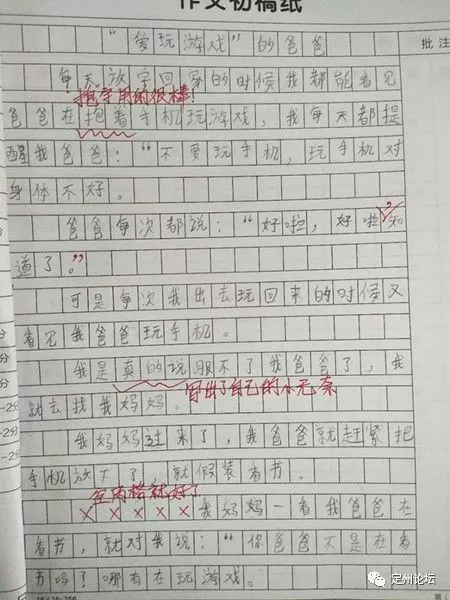 作文初稿纸
“爱玩游戏”的爸爸
批注
每天放学回家的时候我都能看见
抱字用的很棒！
爸爸在抱着手机玩游戏，我每天都提
醒我爸爸：“不要玩手机，玩手机对
身体不好。
爸爸每次都说：“好啦，好啦，知
道了。”
可是每次我出去玩回来的时候又
看见我爸爸玩手机。
我是真的说服不了我爸爸了，我
就去找我妈妈。
写出了自己的小无奈
我妈妈过来了，我爸爸就赶紧把
手机放下了，就假装看书。
空两格就好了
我妈妈一看我爸爸在
看书，就对我说：“你爸爸不是在看
书吗？哪有在玩游戏。
定州论坛